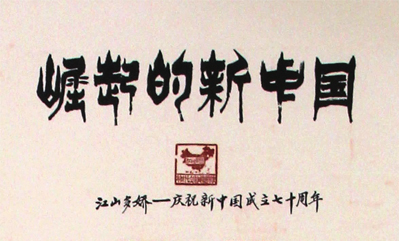 崛起的新中国
江山多娇——庆祝新中国成立七十周年